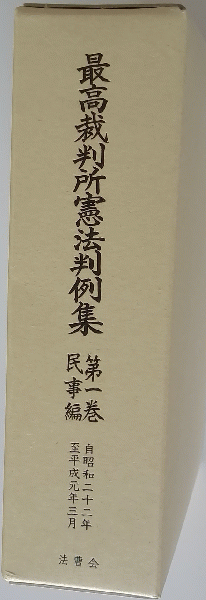 最高裁判所憲法判例集
第一巻
民事編
自昭和二十二年
至平成元年三月
法曹会